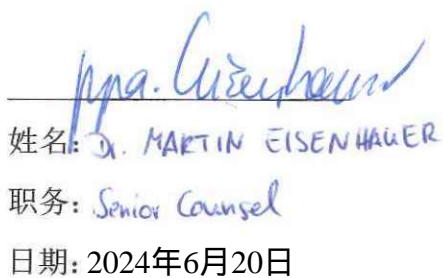 ppa. Eisenhauer
姓名: Dr. MARTIN EISENHAUER
职务: Senior Counsel
日期: 2024年6月20日